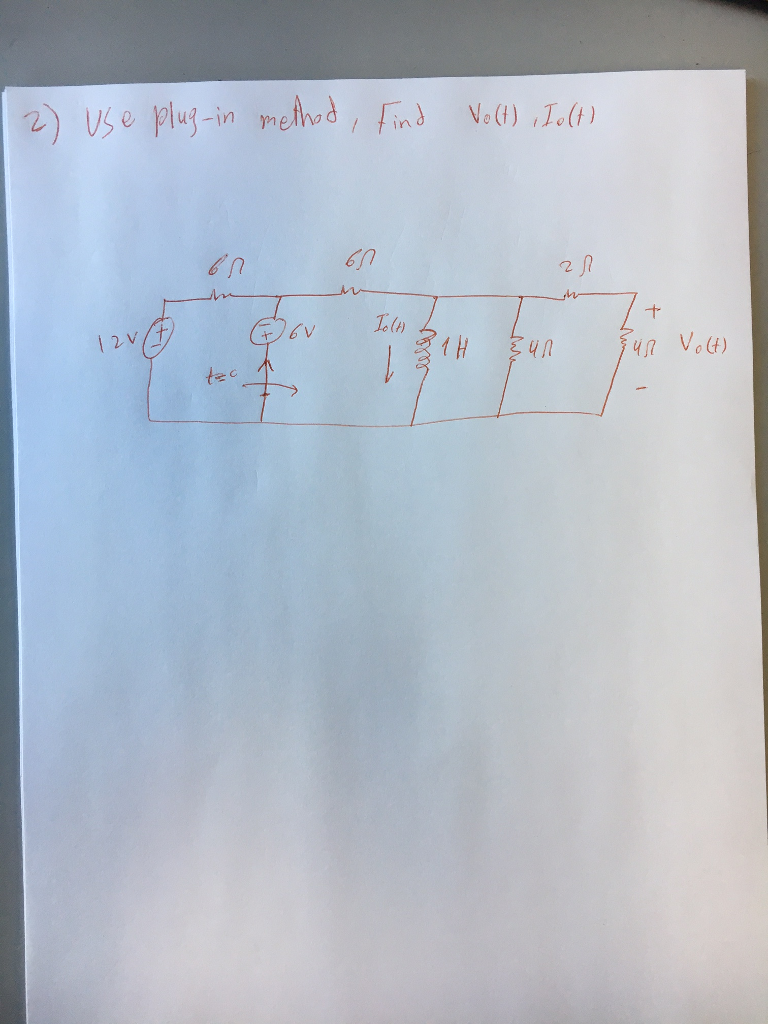 2) Use plug-in method, Find Vo(t), Io(t)
6Ω 6Ω 2Ω
12V + - - + 6V Io(t) 1H 4Ω + 4Ω Vo(t) -